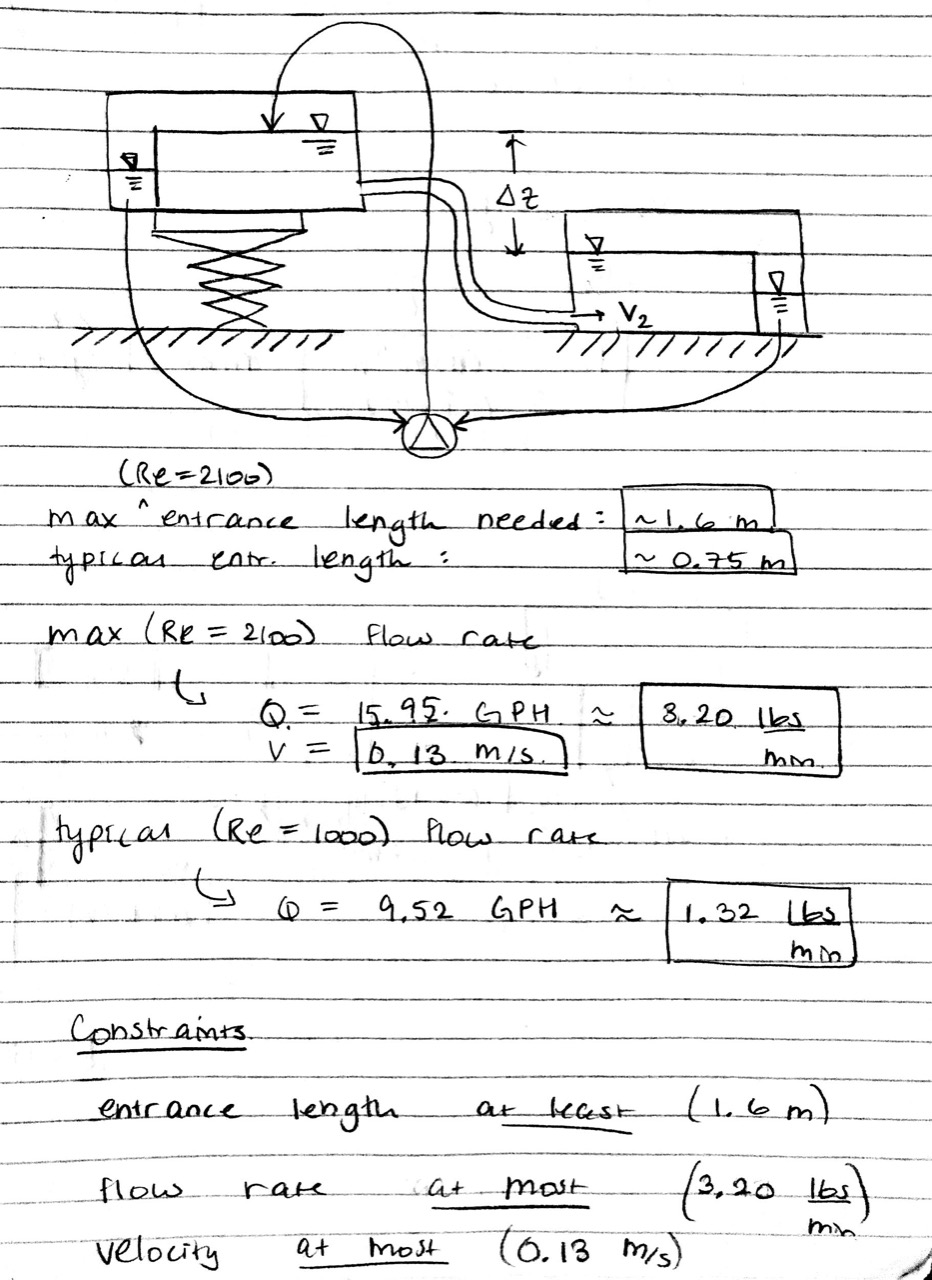 ΔZ
V₂
(Re=2100)
max ^ entrance length needed: ~1.6 m
typical entr. length: ~ 0.75 m
max (Re = 2100) flow rate
Q = 15.95 GPH ≈ 3.20 lbs/min
V = 0.13 m/s
typical (Re = 1000) flow rate
Q = 9.52 GPH ≈ 1.32 lbs/min
Constraints
entrance length at least (1.6 m)
flow rate at most (3.20 lbs/min)
velocity at most (0.13 m/s)